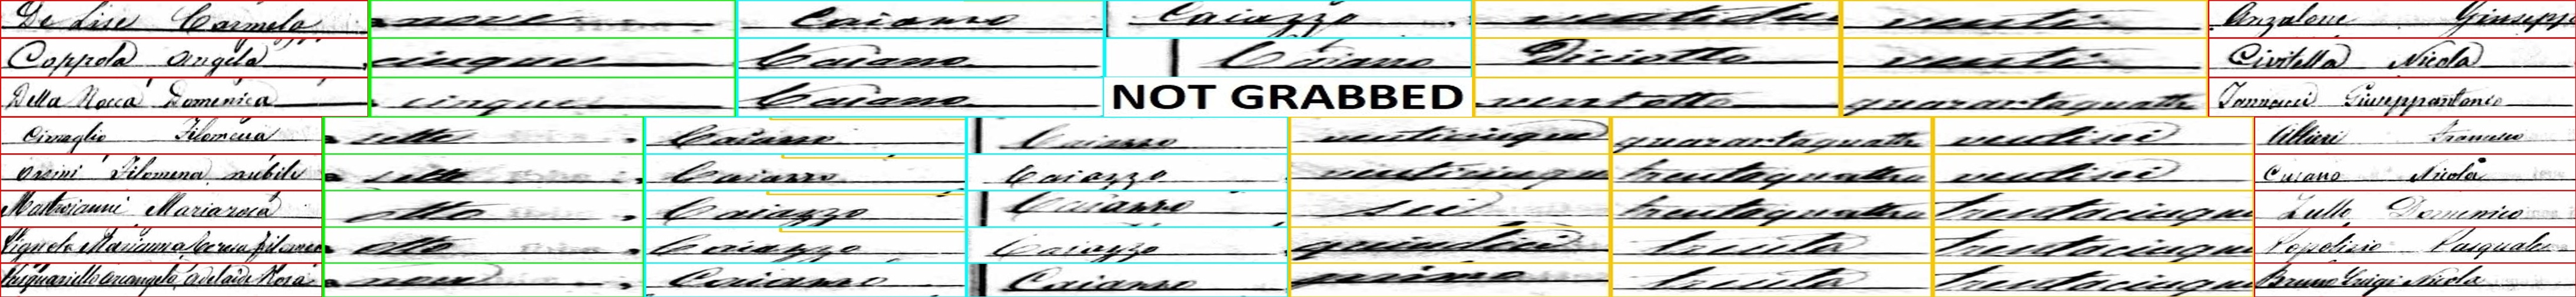 De Lise Carmela nove Caiazzo Caiazzo ventidue venti Anzalone Giuseppe
Coppola Angela cinque Caiazzo Caiazzo Diciotto venti Civitella Nicola
Della Rocca Domenica cinque Caiazzo NOT GRABBED ventotto quarantaquattro Iannucci Giuseppantonio
Cimaglio Filomena sette Caiazzo Caiazzo venticinque quarantaquattro ventisei Altieri Francesco
Orsini Filomena nubile sette Caiazzo Caiazzo venticinque trentaquattro ventisei Cusano Nicola
Mastroianni Mariarosa otto Caiazzo Caiazzo sei trentaquattro trentacinque Zullo Domenico
Marianna Teresa Filomena otto Caiazzo Caiazzo quindici trenta trentacinque Pasquale
arcangela Adelaide Rosa nove Caiazzo Caiazzo primo trenta trentacinque Bruno Luigi Nicola